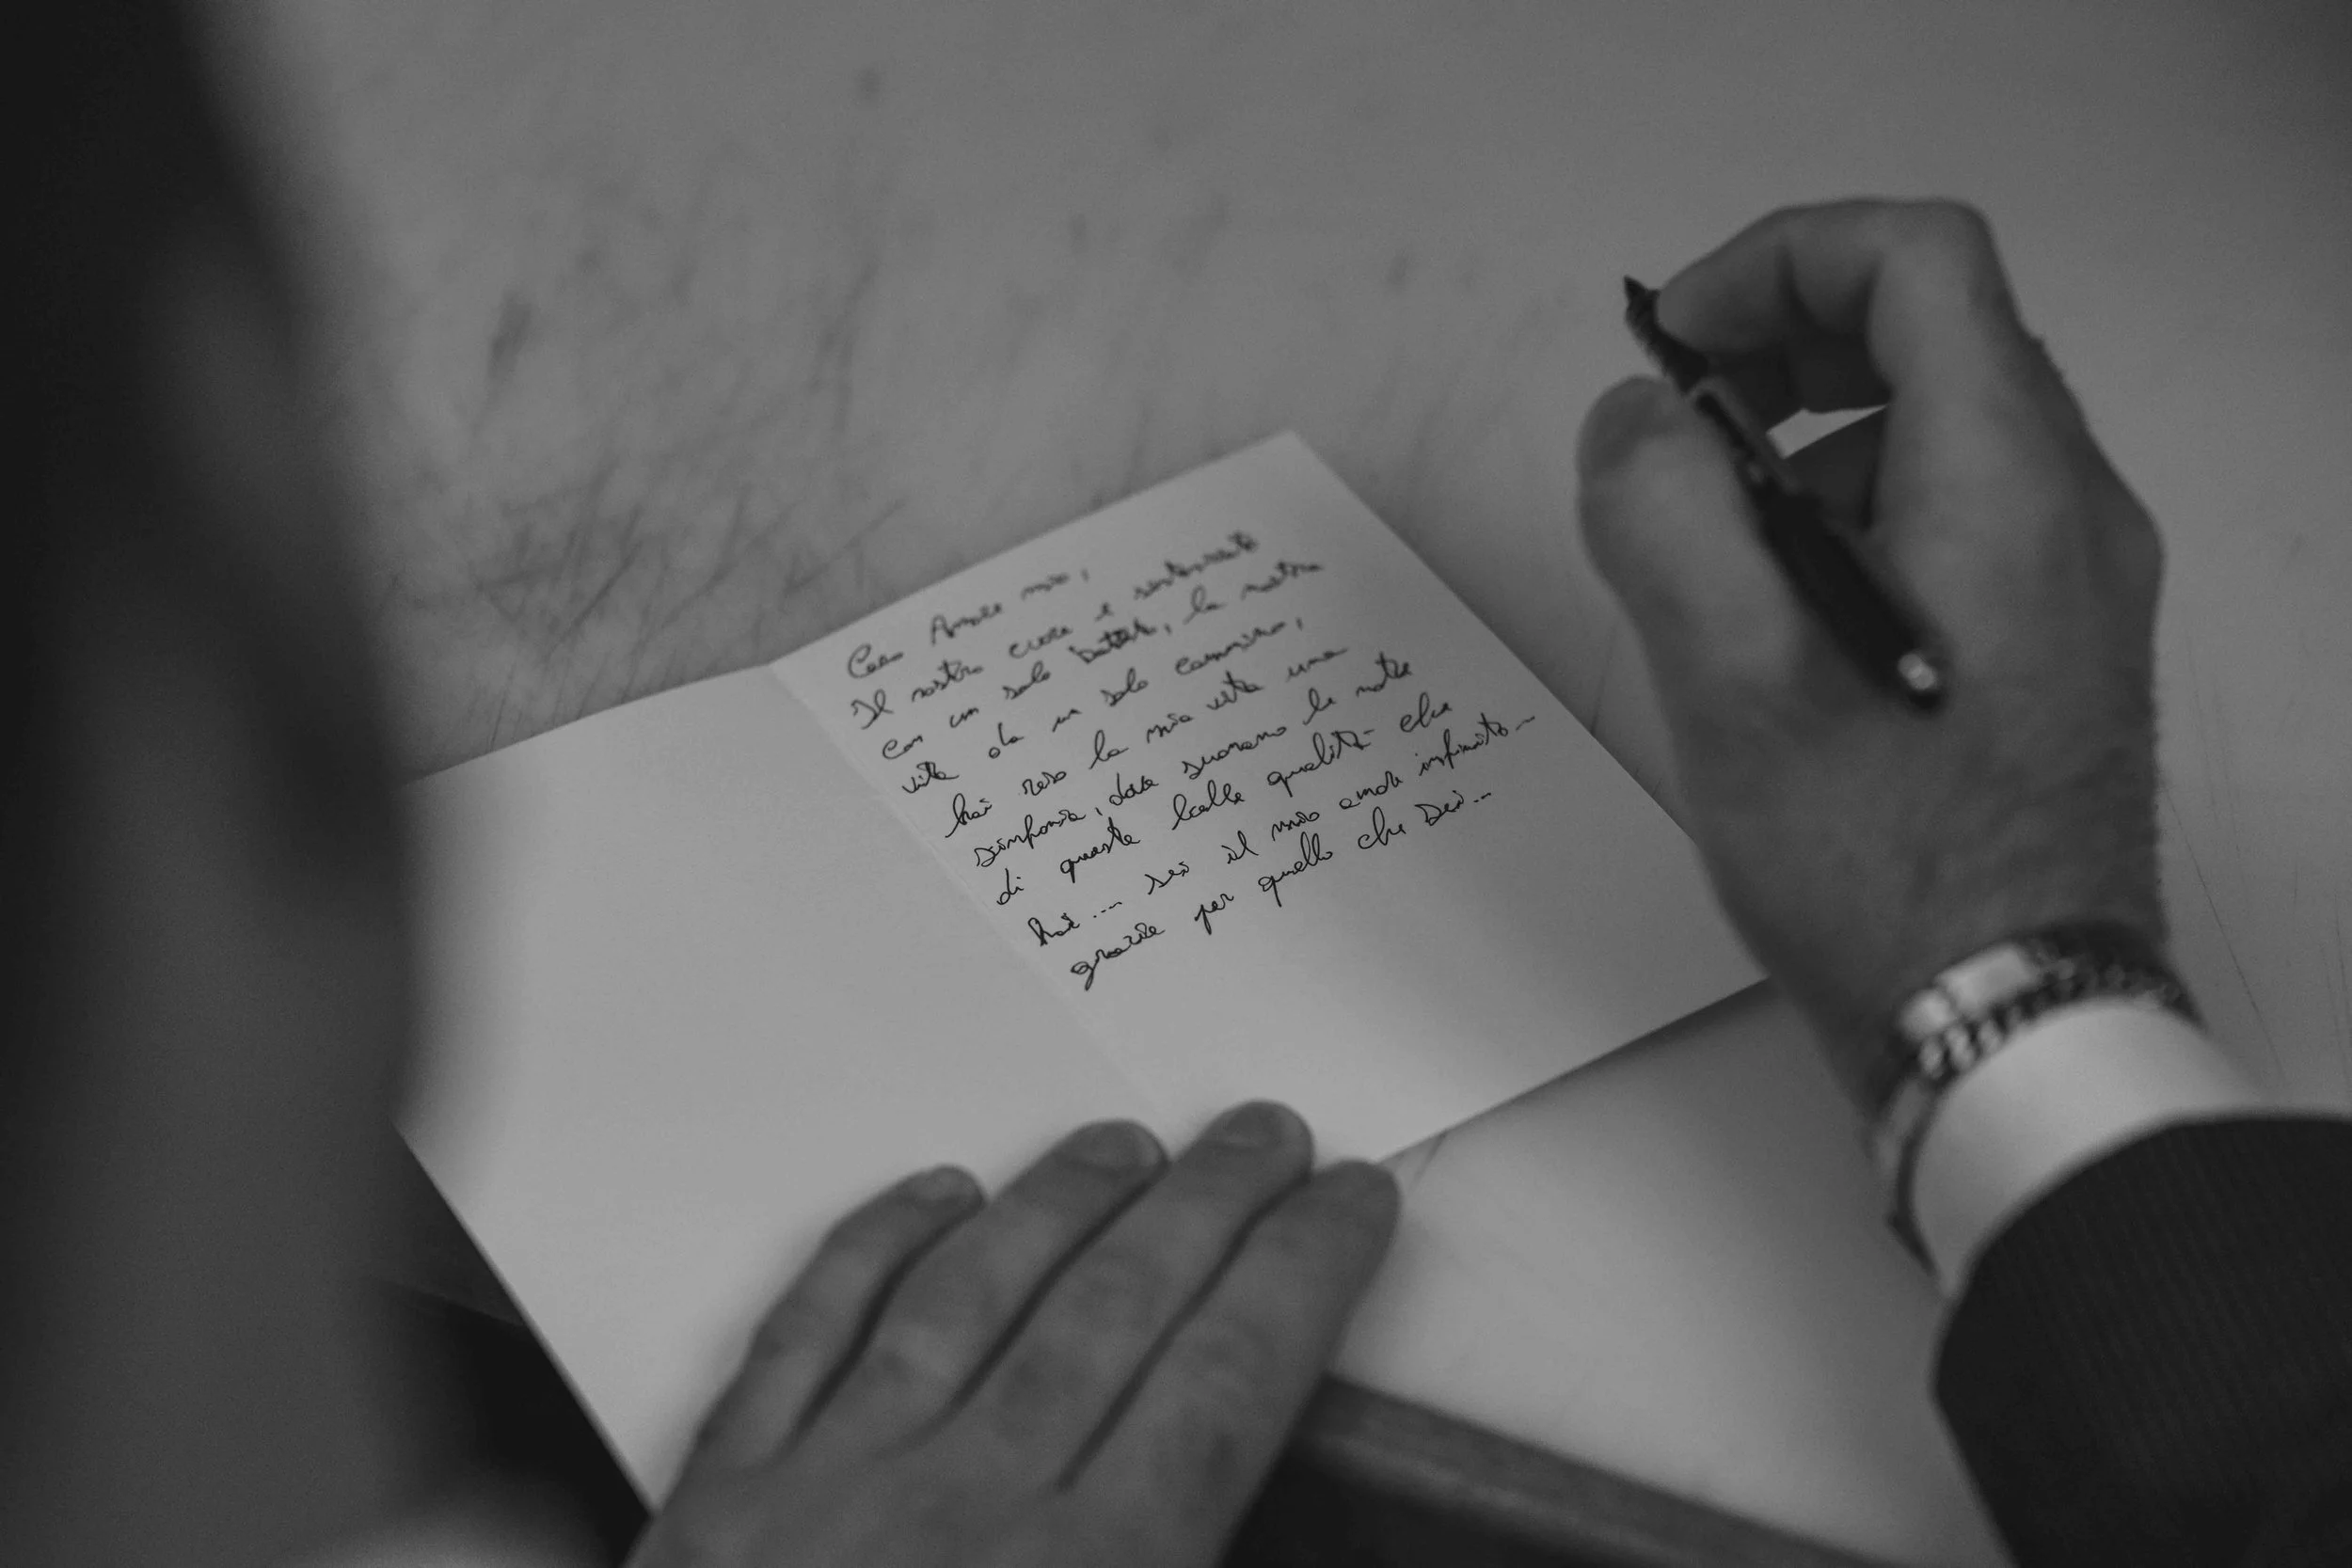 Caro Amore mio,
Il nostro cuore è sintonizzato
con un solo battito, la nostra
vita da un solo cammino,
hai reso la mia vita una
sinfonia, dove suonano le note
di queste belle qualità che
hai ... sei il mio amore infinito...
grazie per quello che sei...